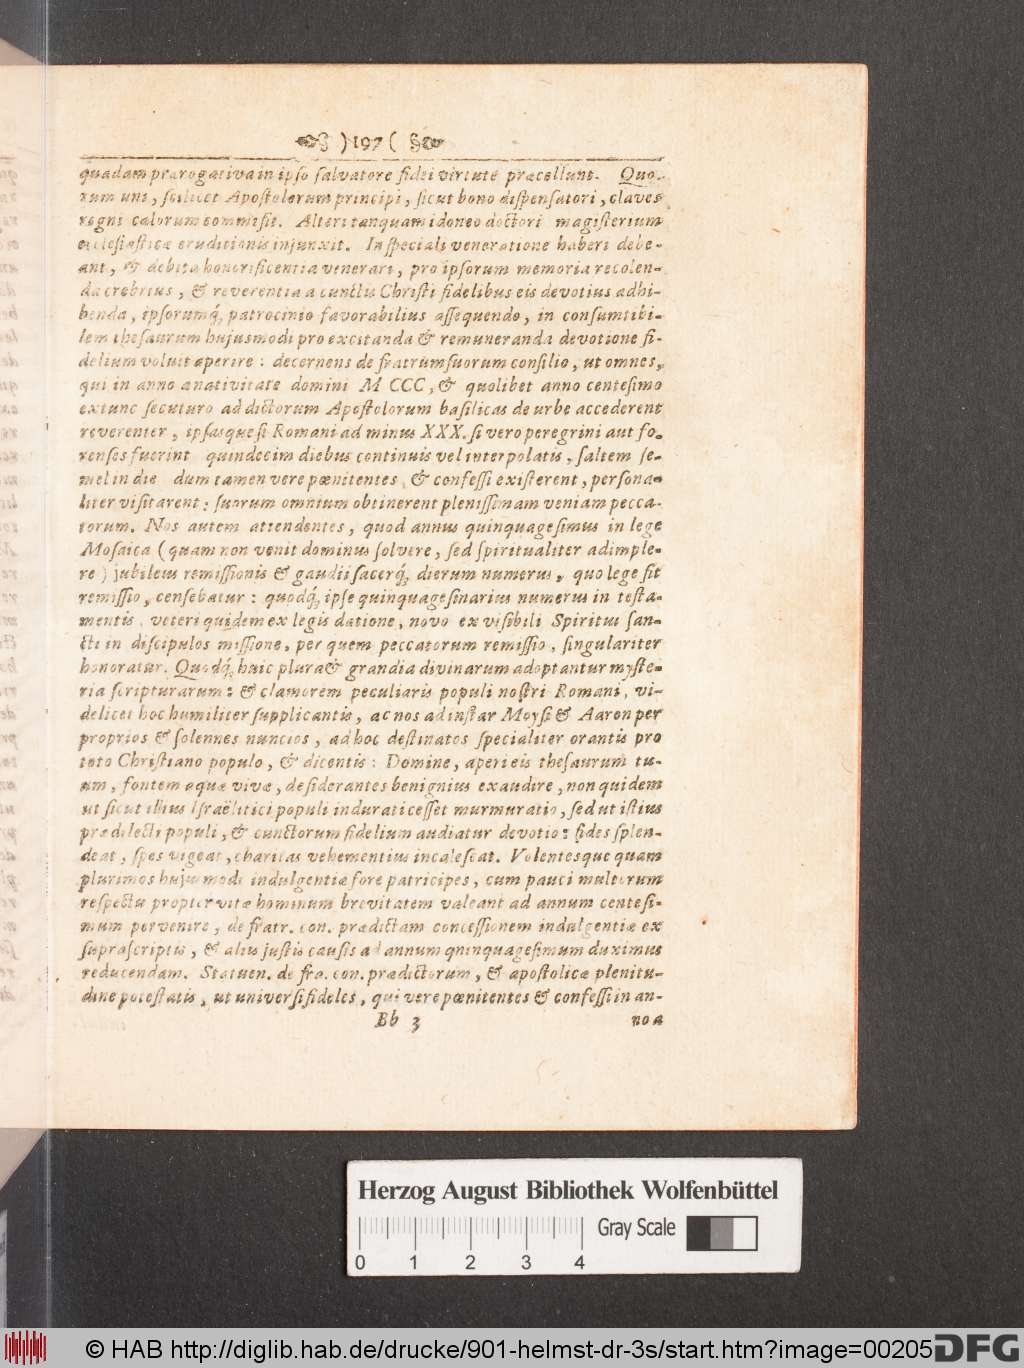 )197(
quadam prærogativa in ipso salvatore fidei virtute præcellunt. Quo-
rum uni, scilicet Apostolorum principi, sicut bono dispensatori, claves
regni cælorum commisit. Alteri tanquam idoneo doctori magisterium
ecclesiasticæ eruditionis injunxit. In speciali veneratione haberi debe-
ant, & debita honorificentia venerari, pro ipsorum memoria recolen-
da crebrius, & reverentia a cunctis Christi fidelibus eis devotius adhi-
benda, ipsorumq́, patrocinio favorabilius assequendo, in consumtibi-
lem thesaurum hujusmodi pro excitanda & remuneranda devotione fi-
delium voluit aperire: decernens de fratrum suorum consilio, ut omnes,
qui in anno a nativitate domini M CCC, & quolibet anno centesimo
extunc secuturo ad dictorum Apostolorum basilicas de urbe accederent
reverenter, ipsasque si Romani ad minus XXX. si vero peregrini aut fo-
renses fuerint quindecim diebus continuis vel interpolatis, saltem se-
mel in die dum tamen vere pœnitentes, & confessi existerent, persona-
liter visitarent: suorum omnium obtinerent plenissimam veniam pecca-
torum. Nos autem attendentes, quod annus quinquagesimus in lege
Mosaica (quam non venit dominus solvere, sed spiritualiter adimple-
re) jubileus remissionis & gaudii sacerq́, dierum numerus, quo lege sit
remissio, censebatur: quodq́, ipse quinquagesinarius numerus in testa-
mentis, veteri quidem ex legis datione, novo ex visibili Spiritus san-
cti in discipulos missione, per quem peccatorum remissio, singulariter
honoratur. Quodq́, huic plura & grandia divinarum adoptantur myste-
ria scripturarum: & clamorem peculiaris populi nostri Romani, vi-
delicet hoc humiliter supplicantis, ac nos ad instar Moysi & Aaron per
proprios & solennes nuncios, ad hoc destinatos specialiter orantis pro
toto Christiano populo, & dicentis: Domine, aperi eis thesaurum tu-
um, fontem aquæ vivæ, desiderantes benignius exaudire, non quidem
ut sicut illius Israëlitici populi indurati cesset murmuratio, sed ut istius
prædilecti populi, & cunctorum fidelium audiatur devotio: fides splen-
deat, spes vigeat, charitas vehementius incalescat. Volentesque quam
plurimos hujusmodi indulgentiæ fore patricipes, cum pauci multorum
respectu propter vitæ hominum brevitatem valeant ad annum centesi-
mum pervenire, de fratr. con. prædictam concessionem indulgentiæ ex
suprascriptis, & aliis justis causis ad annum qninquagesimum duximus
reducendam. Statuen. de fra. con. prædictorum, & apostolicæ plenitu-
dine potestatis, ut universi fideles, qui vere pœnitentes & confessi in an-
Bb 3 no a
Herzog August Bibliothek Wolfenbüttel
Gray Scale
0 1 2 3 4
© HAB http://diglib.hab.de/drucke/901-helmst-dr-3s/start.htm?image=00205
DFG